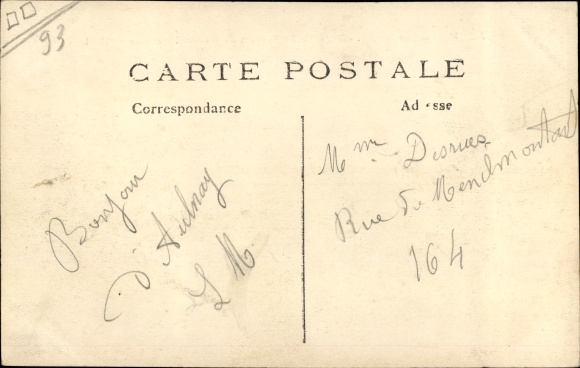 93
CARTE POSTALE
Correspondance
Ad sse
Bonjour
d'Aulnay
L M.
Mme Desrues
Rue de Menilmontant
164